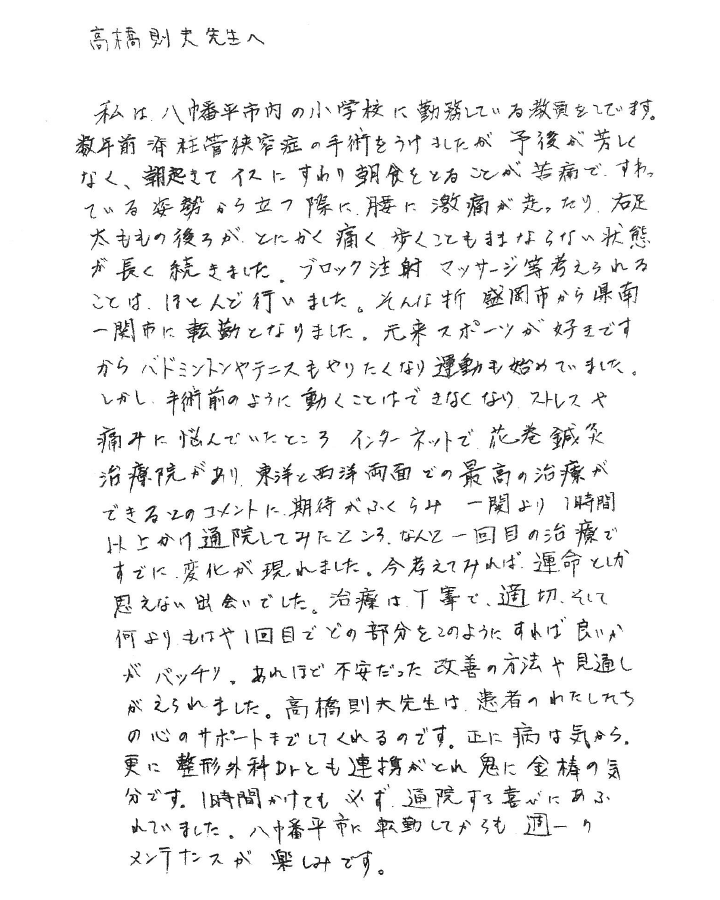 高橋則夫先生へ
私は、八幡平市内の小学校に勤務している教員をしています。
数年前 脊柱管狭窄症の手術をうけましたが 予後が芳しく
なく、朝起きて イスに すわり 朝食をとることが 苦痛で、すわっ
ている 姿勢 から 立つ 際に、腰に 激痛が 走ったり、右足
太ももの後ろが、とにかく 痛く、歩くことも ままならない状態
が 長く 続きました。ブロック注射 マッサージ等考えられる
ことは、ほとんど行いました。そんな折 盛岡市から県南
一関市に転勤となりました。元来スポーツが好きです
から バドミントンやテニスもやりたくなり 運動も始めていました。
しかし、手術前のように動くことはできなくなり、ストレスや
痛みに悩んでいたところ インターネットで、花巻鍼灸
治療院があり、東洋と西洋両面での最高の治療が
できるとのコメントに、期待がふくらみ 一関より 1時間
以上かけ通院してみたところ、なんと一回目の治療で
すでに、変化が現れました。今考えてみれば、運命としか
思えない出会いでした。治療は、丁寧で、適切、そして
何より、もはや1回目でどの部分をこのようにすれば良いか
が バッチリ。あれほど不安だった改善の方法や見通し
がえられました。高橋則夫先生は、患者のわたしたち
の心のサポートまでしてくれるのです。正に病は気から。
更に 整形外科Drとも連携がとれ 鬼に金棒の気
分です。1時間かけても 必ず、通院する喜びにあふ
れていました。八幡平市に転勤してからも 週一の
メンテナンスが 楽しみです。